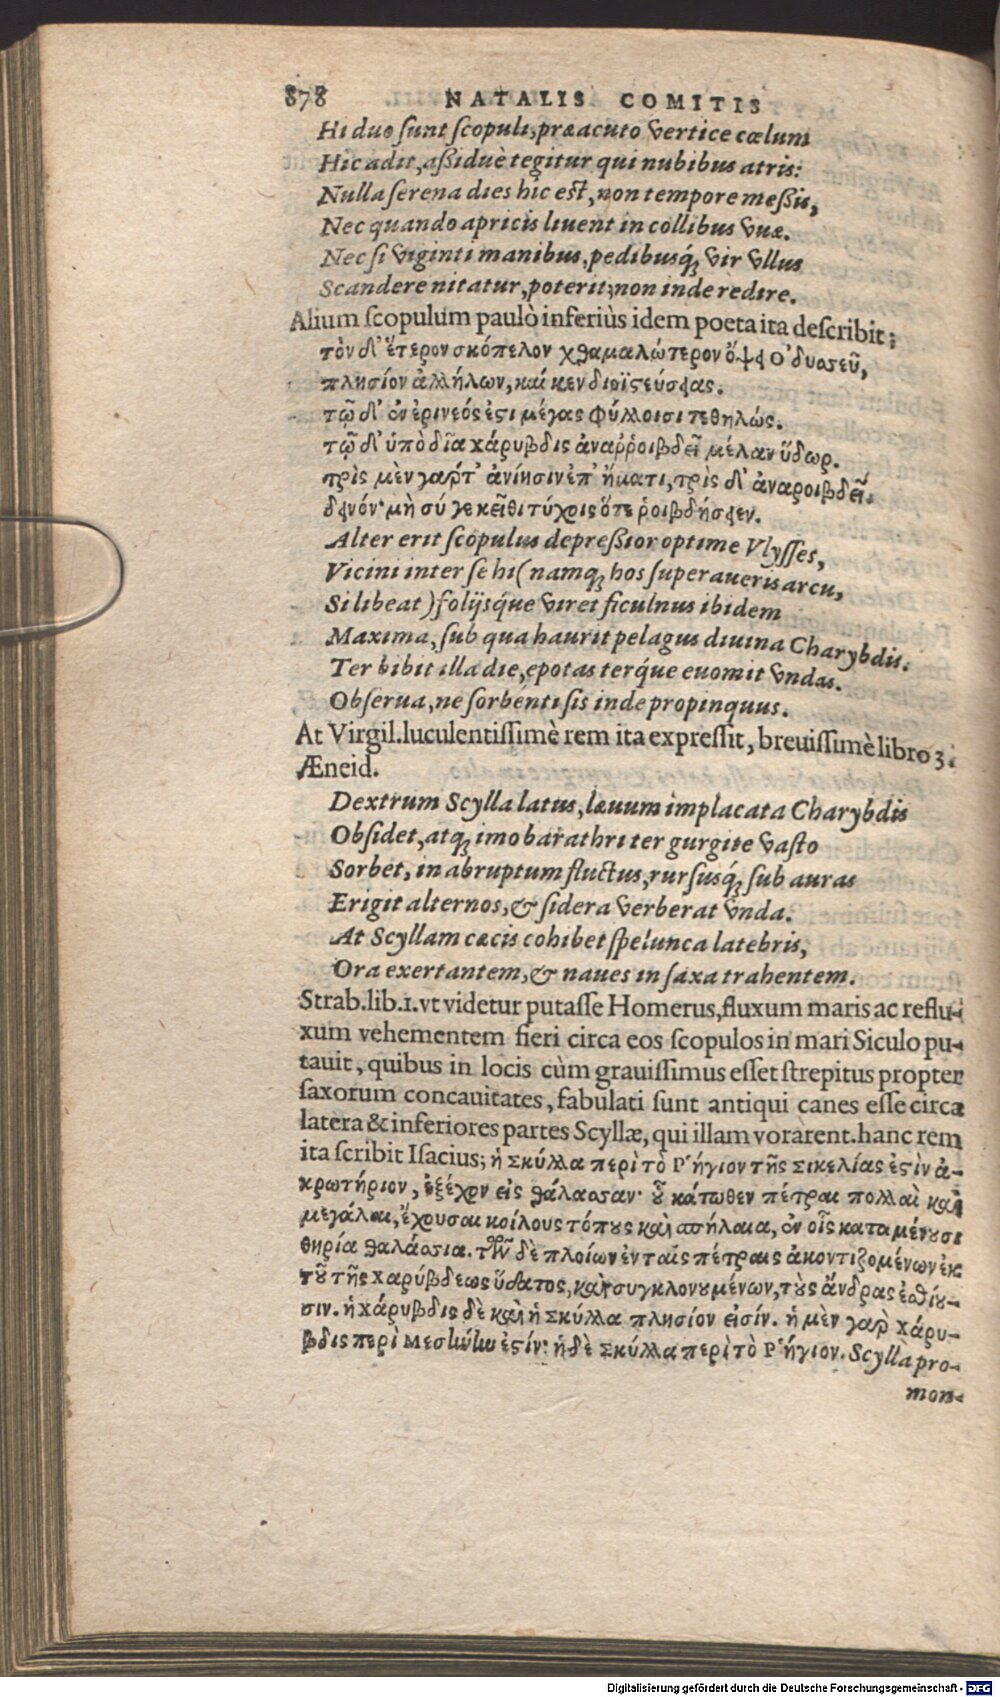 878 NATALIS COMITIS
Hi duo sunt scopuli, præacuto vertice cœlum
Hic adit, aßiduè tegitur qui nubibus atris:
Nulla serena dies hic est, non tempore meßis,
Nec quando apricis liuent in collibus vuæ.
Nec si viginti manibus, pedibusq́; vir vllus
Scandere nitatur, poterit; non inde redire.
Alium scopulum paulò inferiùs idem poeta ita describit;
τὸν δ' ἕτερον σκόπελον χθαμαλώτερον ὄψει Ο᾽δυσσεῦ,
πλησίον ἀλλήλων, καί κεν διοϊστεύσειας.
τῷ δ' ἐν ἐρινεός ἐστι μέγας φύλλοισι τεθηλώς.
τῷ δ' ὑπὸ δῖα χάρυβδις ἀναῤῥοιβδεῖ μέλαν ὕδωρ.
τρὶς μὲν γάρ τ' ἀνίησιν ἐπ' ἤματι, τρὶς δ' ἀναροιβδεῖ.
δεινόν· μὴ σύ γε κεῖθι τύχοις ὅτε ῥοιβδήσειεν.
Alter erit scopulus depreßior optime Vlysses,
Vicini inter se hi (namq; hos superaueris arcu,
Si libeat) folijsq́ue viret ficulnus ibidem
Maxima, sub qua haurit pelagus diuina Charybdis.
Ter bibit illa die, epotas terq́ue euomit vndas.
Obserua, ne sorbenti sis inde propinquus.
At Virgil. luculentissimè rem ita expressit, breuissimè libro 3.
Æneid.
Dextrum Scylla latus, læuum implacata Charybdis
Obsidet, atq; imo barathri ter gurgite vasto
Sorbet, in abruptum fluctus, rursusq́; sub auras
Erigit alternos, & sidera verberat vnda.
At Scyllam cæcis cohibet spelunca latebris,
Ora exertantem, & naues in saxa trahentem.
Strab. lib. 1. vt videtur putasse Homerus, fluxum maris ac reflu-
xum vehementem fieri circa eos scopulos in mari Siculo pu-
tauit, quibus in locis cùm grauissimus esset strepitus propter
saxorum concauitates, fabulati sunt antiqui canes esse circa
latera & inferiores partes Scyllæ, qui illam vorarent. hanc rem
ita scribit Isacius; ἡ Σκύλλα περὶ τὸ Ρ῾ήγιον τῆς Σικελίας ἐστὶν ἀ-
κρωτήριον, ἐξέχον εἰς θάλασσαν· οὗ κάτωθεν πέτραι πολλαὶ καὶ
μεγάλαι, ἔχουσαι κοίλους τόπους καὶ σπήλαια, ἐν οἷς καταμένουσι
θηρία θαλάσσια. τῶν δὲ πλοίων ἐν ταῖς πέτραις ἀκοντιζομένων ἐκ
τοῦ τῆς Χαρύβδεως ὕδατος, καὶ συγκλονουμένων, τοὺς ἄνδρας ἐσθίου-
σιν. ἡ χάρυβδις δὲ καὶ ἡ Σκύλλα πλησίον εἰσίν. ἡ μὲν γὰρ χάρυ-
βδις περὶ Μεσήνην ἐστίν· ἡ δὲ Σκύλλα περὶ τὸ Ρ῾ήγιον. Scylla pro-
mon-
Digitalisierung gefördert durch die Deutsche Forschungsgemeinschaft - DFG